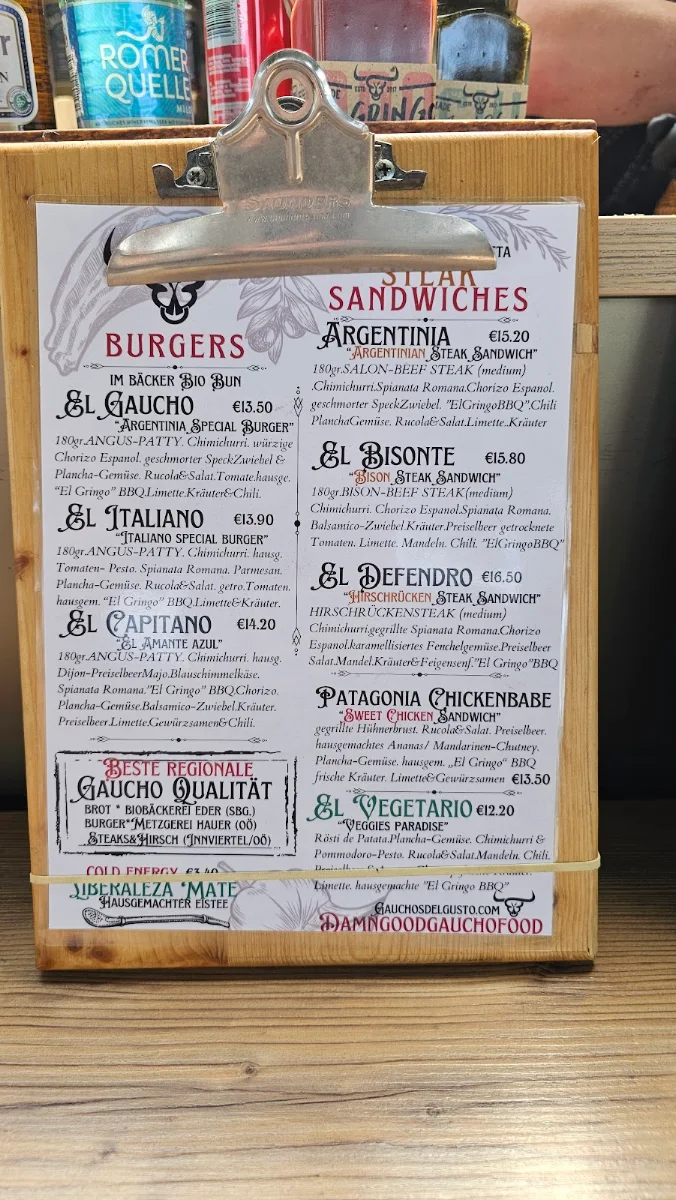 RÖMER
QUELLE
GRINGO
SAUNDERS
BURGERS
IM BÄCKER BIO BUN
EL GAUCHO €13.50
"ARGENTINIA SPECIAL BURGER"
180gr.ANGUS-PATTY. Chimichurri. würzige
Chorizo Espanol. geschmorter SpeckZwiebel &
Plancha-Gemüse. Rucola&Salat.Tomate.hausge.
"El Gringo" BBQ.Limette.Kräuter&Chili.
EL ITALIANO €13.90
"ITALIANO SPECIAL BURGER"
180gr.ANGUS-PATTY. Chimichurri. hausg.
Tomaten- Pesto. Spianata Romana. Parmesan.
Plancha-Gemüse. Rucola&Salat. getro.Tomaten.
hausgem. "El Gringo" BBQ.Limette&Kräuter.
EL CAPITANO €14.20
"EL AMANTE AZUL"
180gr.ANGUS-PATTY. Chimichurri. hausg.
Dijon-PreiselbeerMajo.Blauschimmelkäse.
Spianata Romana."El Gringo" BBQ.Chorizo.
Plancha-Gemüse.Balsamico-Zwiebel.Kräuter.
Preiselbeer.Limette.Gewürzsamen&Chili.
BESTE REGIONALE
GAUCHO QUALITÄT
BROT * BIOBÄCKEREI EDER (SBG.)
BURGER*METZGEREI HAUER (OÖ)
STEAKS&HIRSCH (INNVIERTEL/OÖ)
COLD ENERGY €3.40
LIBERALEZA *MATE
HAUSGEMACHTER EISTEE
STEAK
SANDWICHES
ARGENTINIA €15.20
"ARGENTINIAN STEAK SANDWICH"
180gr.SALON-BEEF STEAK (medium)
.Chimichurri.Spianata Romana.Chorizo Espanol.
geschmorter SpeekZwiebel. "ElGringoBBQ".Chili
PlanchaGemüse. Rucola&Salat.Limette..Kräuter
EL BISONTE €15.80
"BISON STEAK SANDWICH"
180gr.BISON-BEEF STEAK(medium)
Chimichurri. Chorizo Espanol.Spianata Romana.
Balsamico-Zwiebel.Kräuter.Preiselbeer getrocknete
Tomaten. Limette. Mandeln. Chili. "ElGringoBBQ"
EL DEFENDRO €16.50
"HIRSCHRÜCKEN STEAK SANDWICH"
HIRSCHRÜCKENSTEAK (medium)
Chimichurri.gegrillte Spianata Romana.Chorizo
Espanol.karamellisiertes Fenchelgemüse.Preiselbeer
Salat.Mandel.Kräuter&Feigensenf."El Gringo"BBQ
PATAGONIA CHICKENBABE
"SWEET CHICKEN SANDWICH"
gegrillte Hühnerbrust. Rucola&Salat. Preiselbeer.
hausgemachtes Ananas/ Mandarinen-Chutney.
Plancha-Gemüse. hausgem. „El Gringo" BBQ
frische Kräuter. Limette&Gewürzsamen €13.50
EL VEGETARIO €12.20
"VEGGIES PARADISE"
Rösti de Patata.Plancha-Gemüse. Chimichurri &
Pommodoro-Pesto. Rucola&Salat.Mandeln. Chili.
Limette. hausgemachte "El Gringo BBQ"
GAUCHOSDELGUSTO.COM
DAMNGOODGAUCHOFOOD